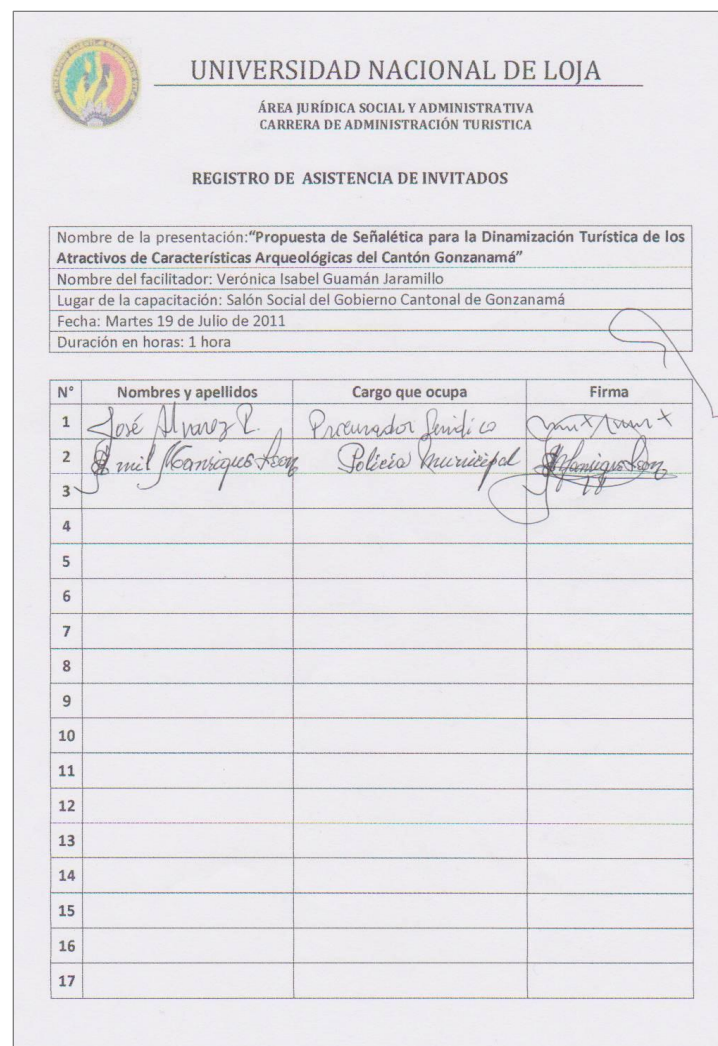 UNIVERSIDAD NACIONAL DE LOJA
ÁREA JURÍDICA SOCIAL Y ADMINISTRATIVA
CARRERA DE ADMINISTRACIÓN TURISTICA
REGISTRO DE ASISTENCIA DE INVITADOS
Nombre de la presentación:“Propuesta de Señalética para la Dinamización Turística de los
Atractivos de Características Arqueológicas del Cantón Gonzanamá”
Nombre del facilitador: Verónica Isabel Guamán Jaramillo
Lugar de la capacitación: Salón Social del Gobierno Cantonal de Gonzanamá
Fecha: Martes 19 de Julio de 2011
Duración en horas: 1 hora
N° Nombres y apellidos Cargo que ocupa Firma
1 José Alvarez R. Procurador Jurídico
2 Emil Manrique León Policía Municipal Manrique León
3
4
5
6
7
8
9
10
11
12
13
14
15
16
17